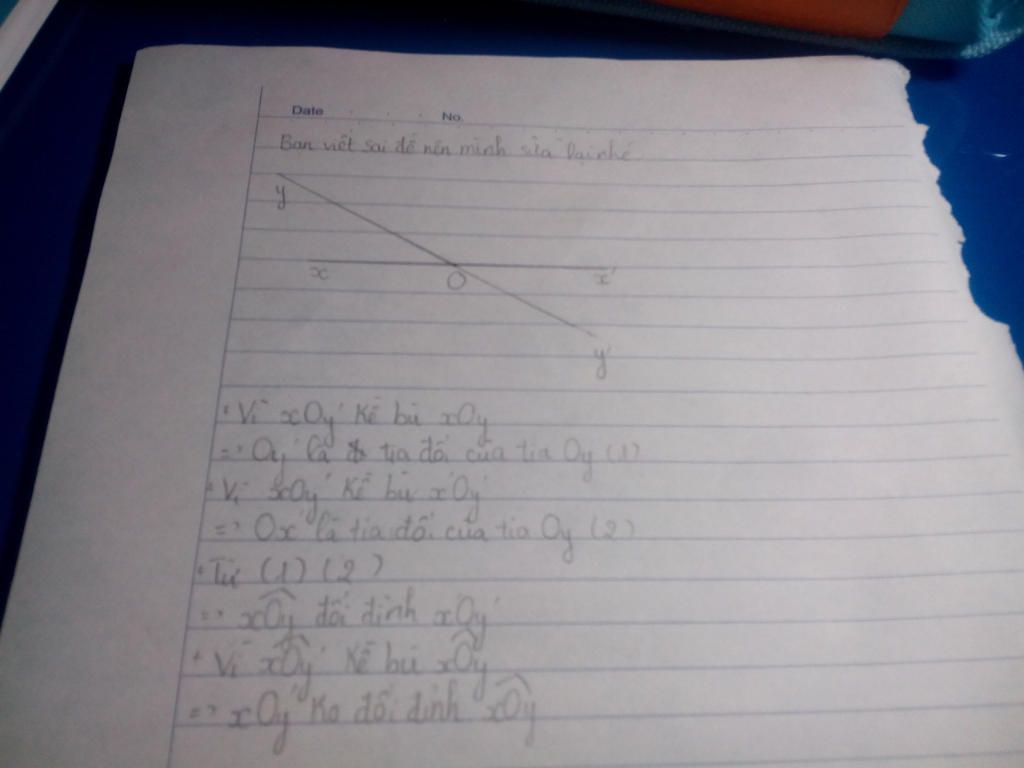 Date No.
Bạn viết sai đề nên mình sửa lại nhé
y
x O x'
y'
+ Vì xOy' kề bù xOy
=> Oy' là tia đối của tia Oy (1)
+ Vì xOy' kề bù x'Oy'
=> Ox' là tia đối của tia Oy (2)
+ Từ (1) (2)
=> xOy đối đỉnh xOy'
+ Vì xOy' kề bù xOy
=> xOy' ko đối đỉnh xOy